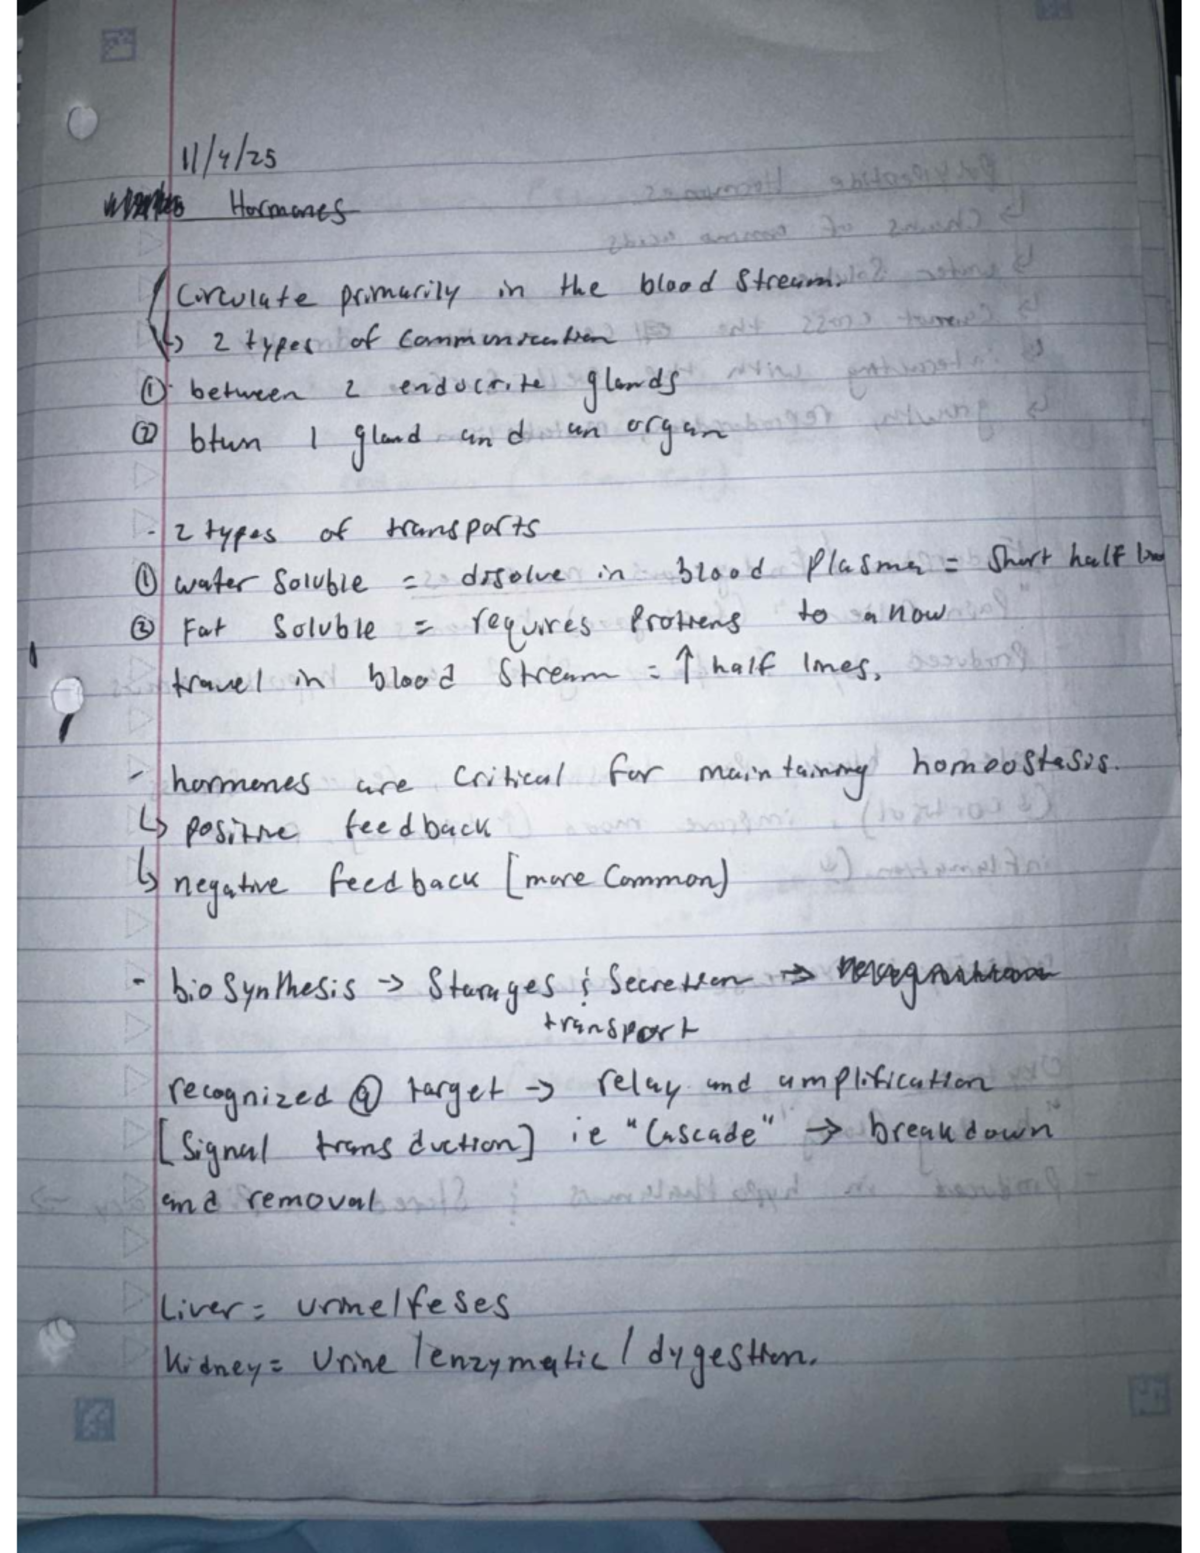 11/4/25
Hormones
Circulate primarily in the blood stream.
↳ 2 types of communication
① between 2 endocrite glands
② btwn 1 gland and an organ
- 2 types of transports
① water soluble = dissolve in blood plasma = short half
② Fat soluble = requires proteins to a now
travel in blood stream = ↑ half lines.
- hormones are critical for maintaining homeostasis.
↳ positive feedback
↳ negative feedback [more common)
- bio synthesis → Storages & Secretion →
transport
recognized @ target → relay and amplification
[signal transduction] ie "Cascade" → breakdown
and removal
Liver = urine/feses
Kidney = Urine / enzymatic / dygestion.